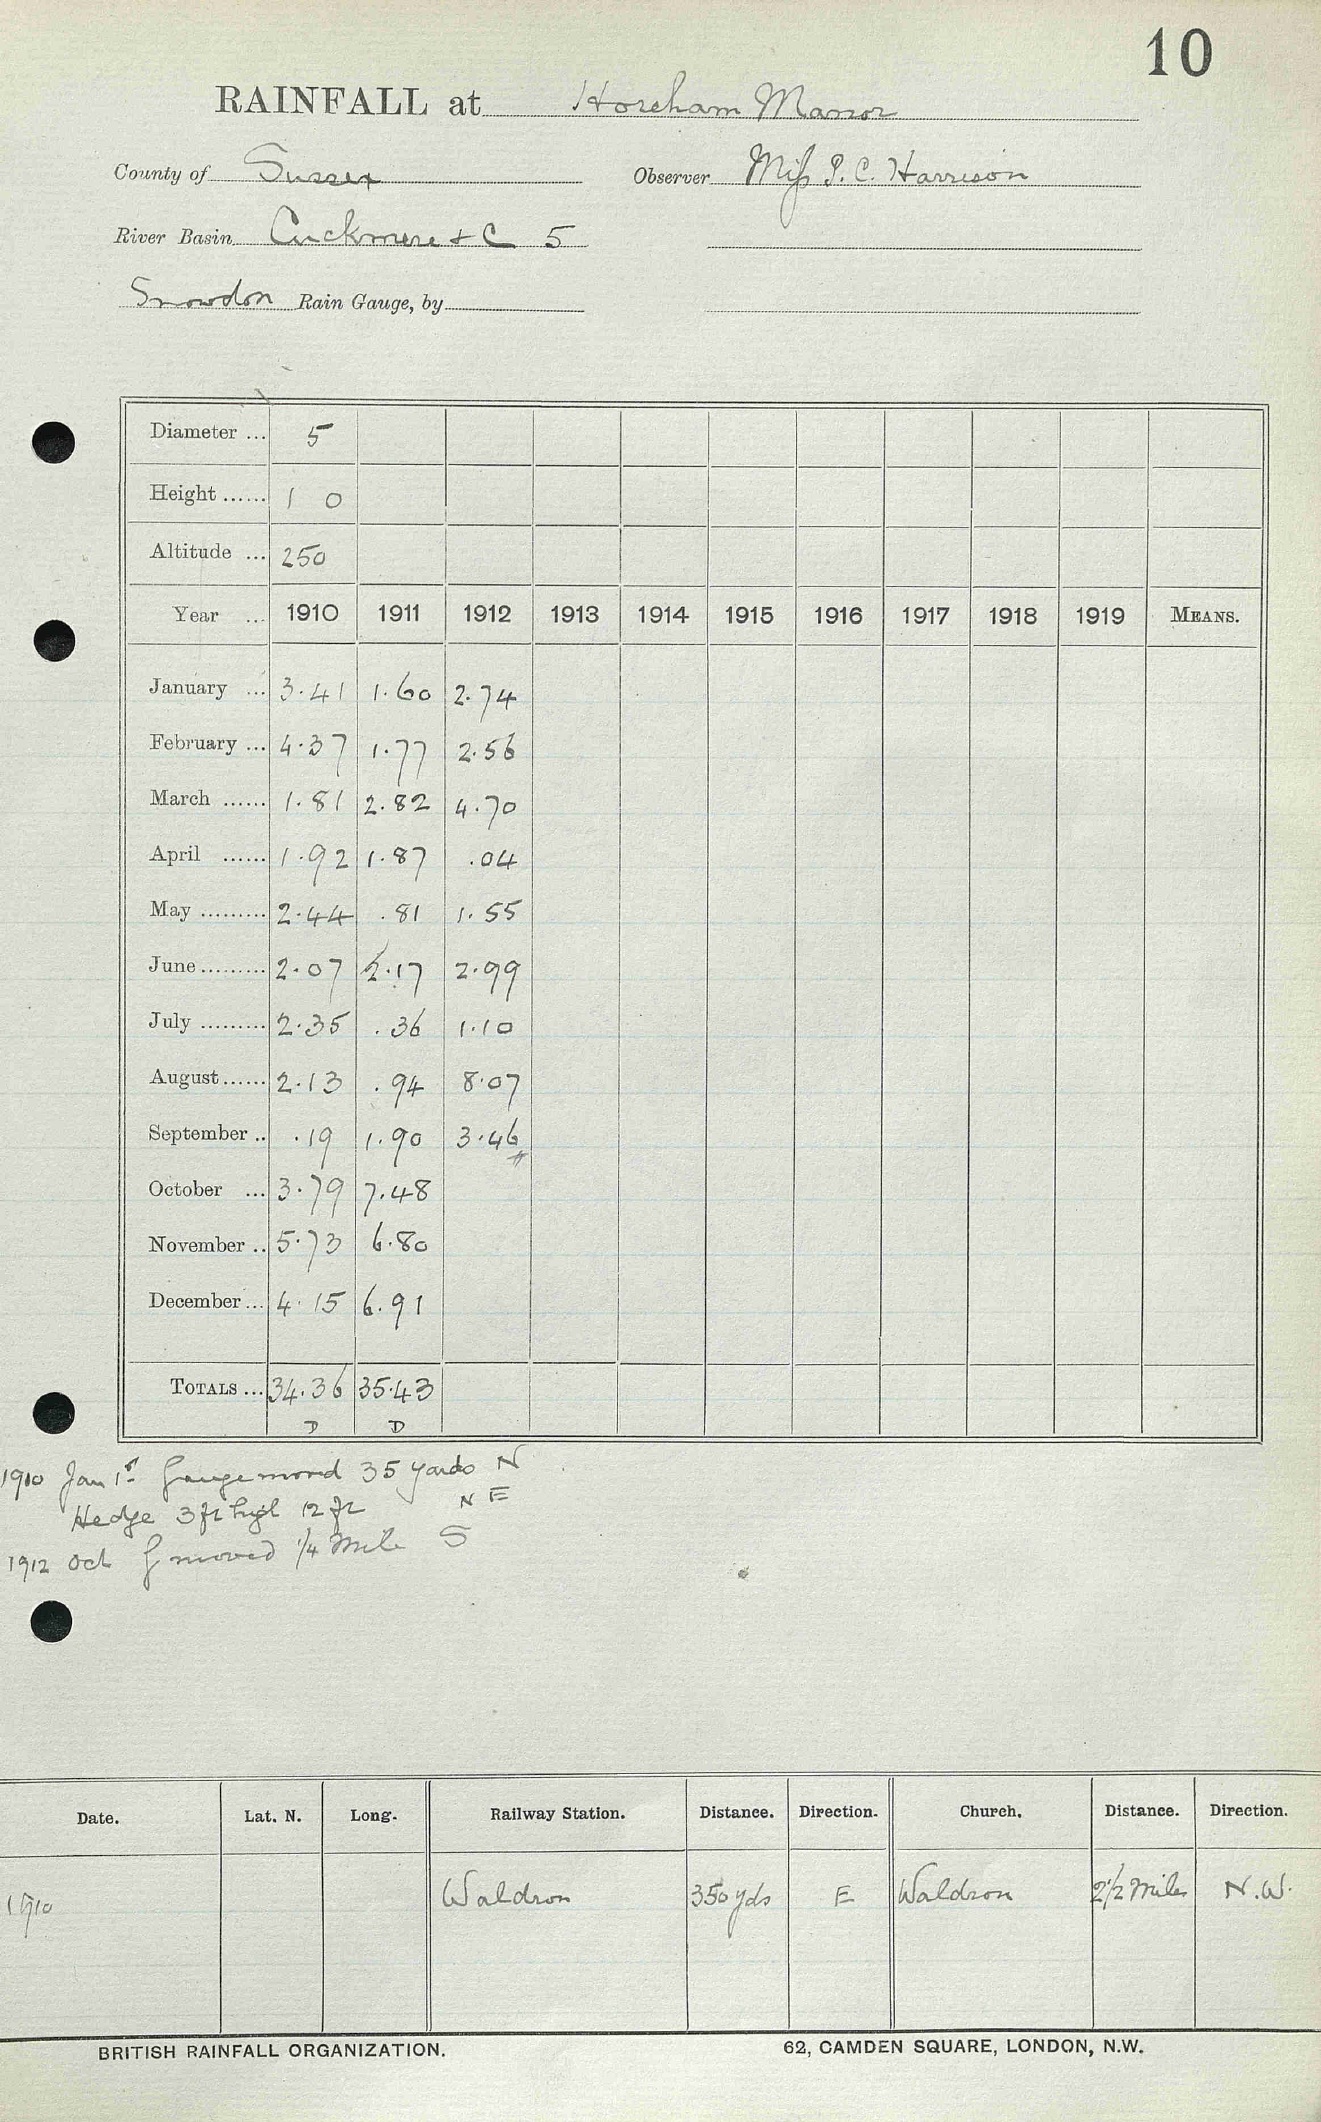 10
RAINFALL at Horeham Manor
County of Sussex Observer Miss P. C. Harrison
River Basin Cuckmere + C 5
Snowdon Rain Gauge, by
Diameter ... 5
Height ...... 1 0
Altitude ... 250
Year ... 1910 1911 1912 1913 1914 1915 1916 1917 1918 1919 MEANS.
January ... 3.41 1.60 2.74
February ... 4.37 1.77 2.56
March ...... 1.81 2.82 4.70
April ...... 1.92 1.87 .04
May ......... 2.44 .81 1.55
June ......... 2.07 2.17 2.99
July ......... 2.35 .36 1.10
August ...... 2.13 .94 8.07
September .. .19 1.90 3.46
October ... 3.79 7.48
November .. 5.73 6.80
December ... 4.15 6.91
TOTALS ... 34.36 35.43
D D
1910 Jan 1st Gauge moved 35 yards N
Hedge 3 ft high 12 ft N E
1912 Oct G moved 1/4 Mile S
Date. Lat. N. Long. Railway Station. Distance. Direction. Church. Distance. Direction.
1910 Waldron 350 yds E Waldron 2 1/2 Miles N.W.
BRITISH RAINFALL ORGANIZATION. 62, CAMDEN SQUARE, LONDON, N.W.